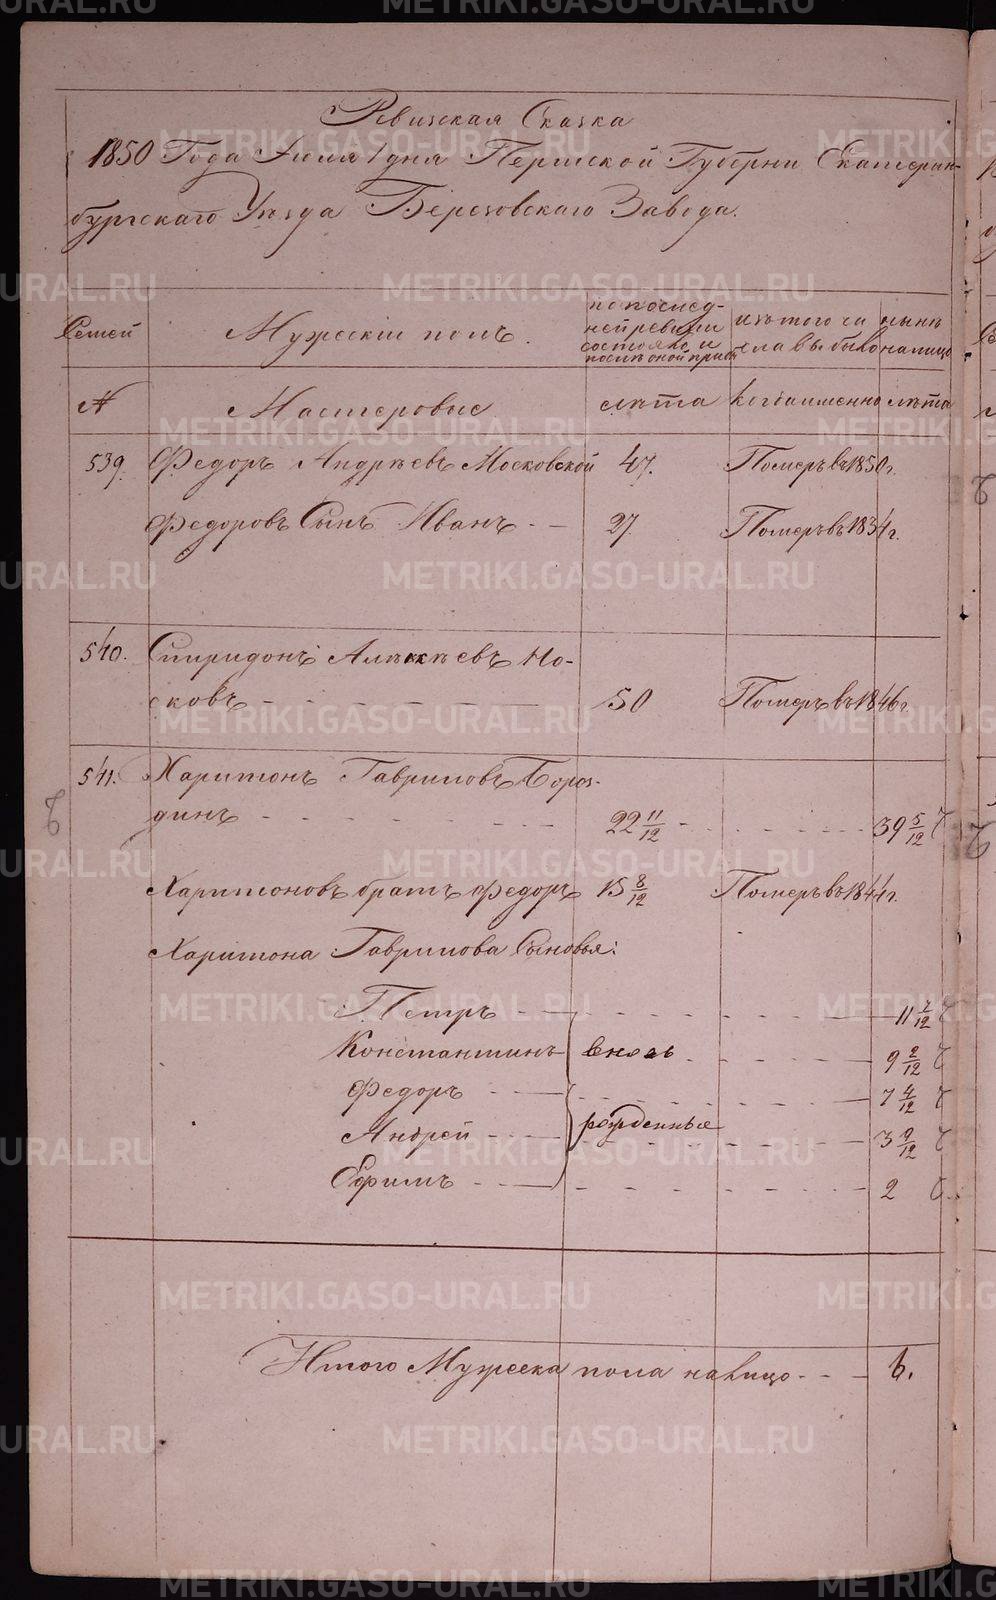 Ревизская Сказка
1850 Года Июля 1 дня Пермской Губерни Екатерин-
бургскаго Уѣзда Березовскаго Завода.
Семей
Мужескiи полъ.
по послед-
ней ревизiи
состояло и
послѣ оной приб
изъ того чи
сла выбыло
нынѣ
налицо
№
Мастеровые
лѣта
когда именно
лѣта
539. Федоръ Андрѣевъ Московской 47. Померъ въ 1850 г.
Федоровъ Сынъ Иванъ - - 27 Померъ въ 1834 г.
540. Спиридонъ Алѣкѣевъ Но-
сковъ - - - 50 Померъ въ 1846 г.
541. Харитонъ Гавриловъ Бороз-
динъ - - - 22 11/12 - - - 39 5/12
Харитоновъ братъ Федоръ 15 8/12 Померъ въ 1844 г.
Харитона Гаврилова Сыновья:
Петръ - - - 11 7/12
Константинъ вновь - - - 9 2/12
Федоръ - - - 7 4/12
Андрей рожденные - - - 3 9/12
Ефимъ - - - 2
Итого Мужеска пола налицо - - - 6.
METRIKI.GASO-URAL.RU